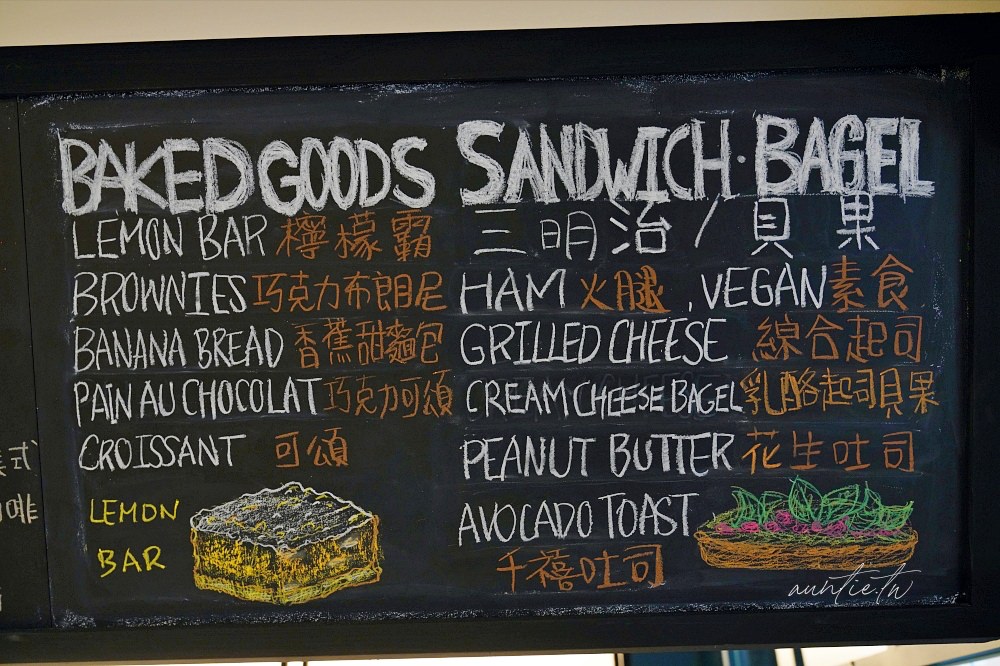 BAKED GOODS
LEMON BAR 檸檬霸
BROWNIES 巧克力布朗尼
BANANA BREAD 香蕉甜麵包
PAIN AU CHOCOLAT 巧克力可頌
CROISSANT 可頌
LEMON
BAR
SANDWICH·BAGEL
三明治/貝果
HAM 火腿, VEGAN 素食
GRILLED CHEESE 綜合起司
CREAM CHEESE BAGEL 乳酪起司貝果
PEANUT BUTTER 花生吐司
AVOCADO TOAST
千禧吐司
auntie.tw
式
啡